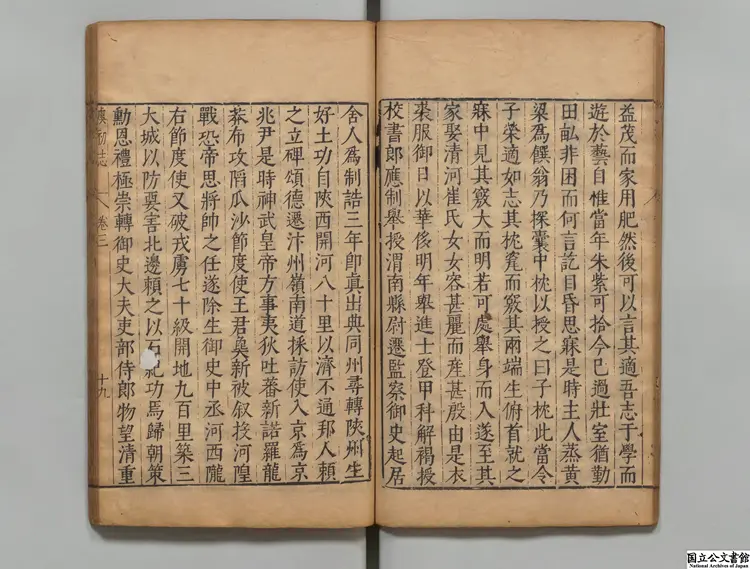 益茂而家用肥然後可以言其適吾志于學而
遊於藝自惟當年朱紫可拾今已過壯室猶勤
田畝非困而何言訖目昏思寐是時主人蒸黃
粱爲饌翁乃探囊中枕以授之曰子枕此當令
子榮適如志其枕瓷而竅其兩端生俯首就之
寐中見其竅大而明若可處舉身而入遂至其
家娶清河崔氏女女容甚麗而產甚殷由是衣
裘服御日以華侈明年舉進士登甲科解褐授
校書郎應制舉授渭南縣尉遷監察御史起居
舍人爲制誥三年即真出典同州尋轉陝州生
好土功自陝西開河八十里以濟不通邦人賴
之立碑頌德遷汴州嶺南道採訪使入京爲京
兆尹是時神武皇帝方事夷狄吐蕃新諾羅龍
莽布攻陷瓜沙節度使王君㚟新被叙投河隍
戰恐帝思將帥之任遂除生御史中丞河西隴
右節度使又破戎虜七十級開地九百里築三
大城以防要害北邊賴之以石紀功焉歸朝策
勳恩禮極崇轉御史大夫吏部侍郎物望清重
虞初志 卷三 十九
国立公文書館
National Archives of Japan